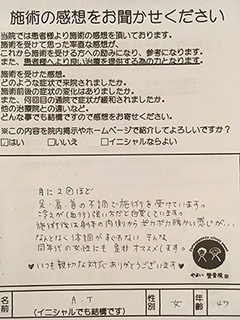 施術の感想をお聞かせください
当院では患者様より施術の感想を頂いております。
施術を受けて思った率直な感想が、
これから施術を受ける方への励みになり、参考になります。
また、患者様へより良い治療を提供する為の力となります。
施術を受けた感想。
どのような症状で来院されましたか。
施術前後の症状の変化はありましたか。
また、何回目の通院で症状が緩和されましたか。
他の治療院との違いなど。
どんな事でも結構ですので感想をお寄せください。
※この内容を院内掲示やホームページで紹介してよろしいですか?
☑はい □いいえ □イニシャルならよい
月に2回ほど
足・肩・首の不調で施術を受けています。
冷えが血行の強い方だと自覚しています。
施術後は身体の内側からポカポカ暖かい感じが…
なんとなく体調がすぐれない そんな
同年代の女性にも是非オススメします。
♥いつも親切な対応ありがとうございます♥
やよい整骨院
名前 A.T (イニシャルでも結構です) 性別 女 年齢 47